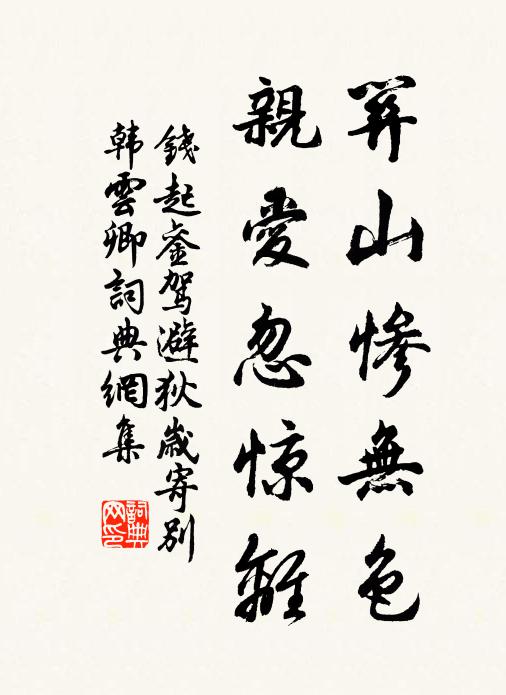 關山慘無色
親愛忽惊離
錢起銮駕避狄歲寄別
韓雲卿詞典網集
詞典
网印